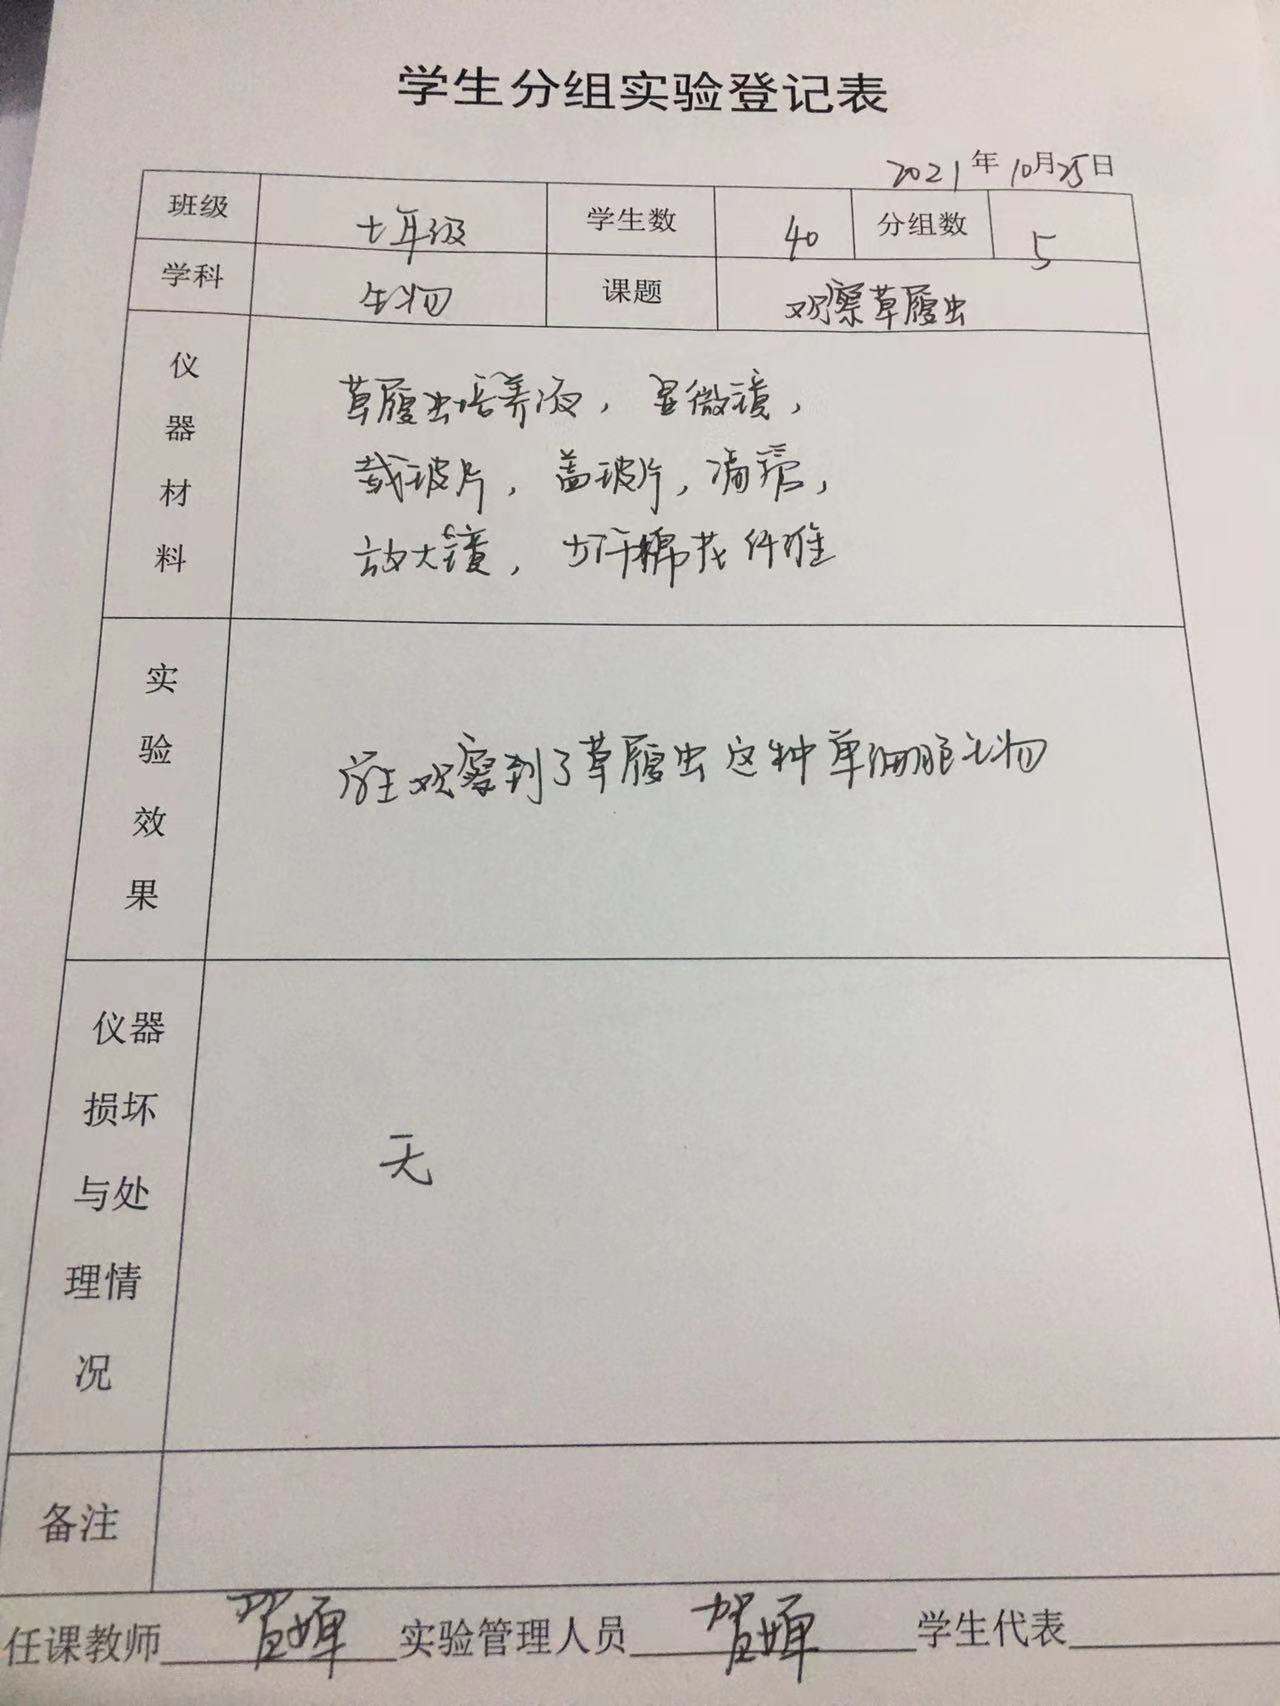 学生分组实验登记表
2021年10月25日
班级 七年级 学生数 40 分组数 5
学科 生物 课题 观察草履虫
仪器材料
草履虫培养液，显微镜，
载玻片，盖玻片，滴管，
放大镜，少许棉花纤维
实验效果
学生观察到了草履虫这种单细胞生物
仪器
损坏
与处
理情
况
无
备注
任课教师 贺婵 实验管理人员 贺婵 学生代表